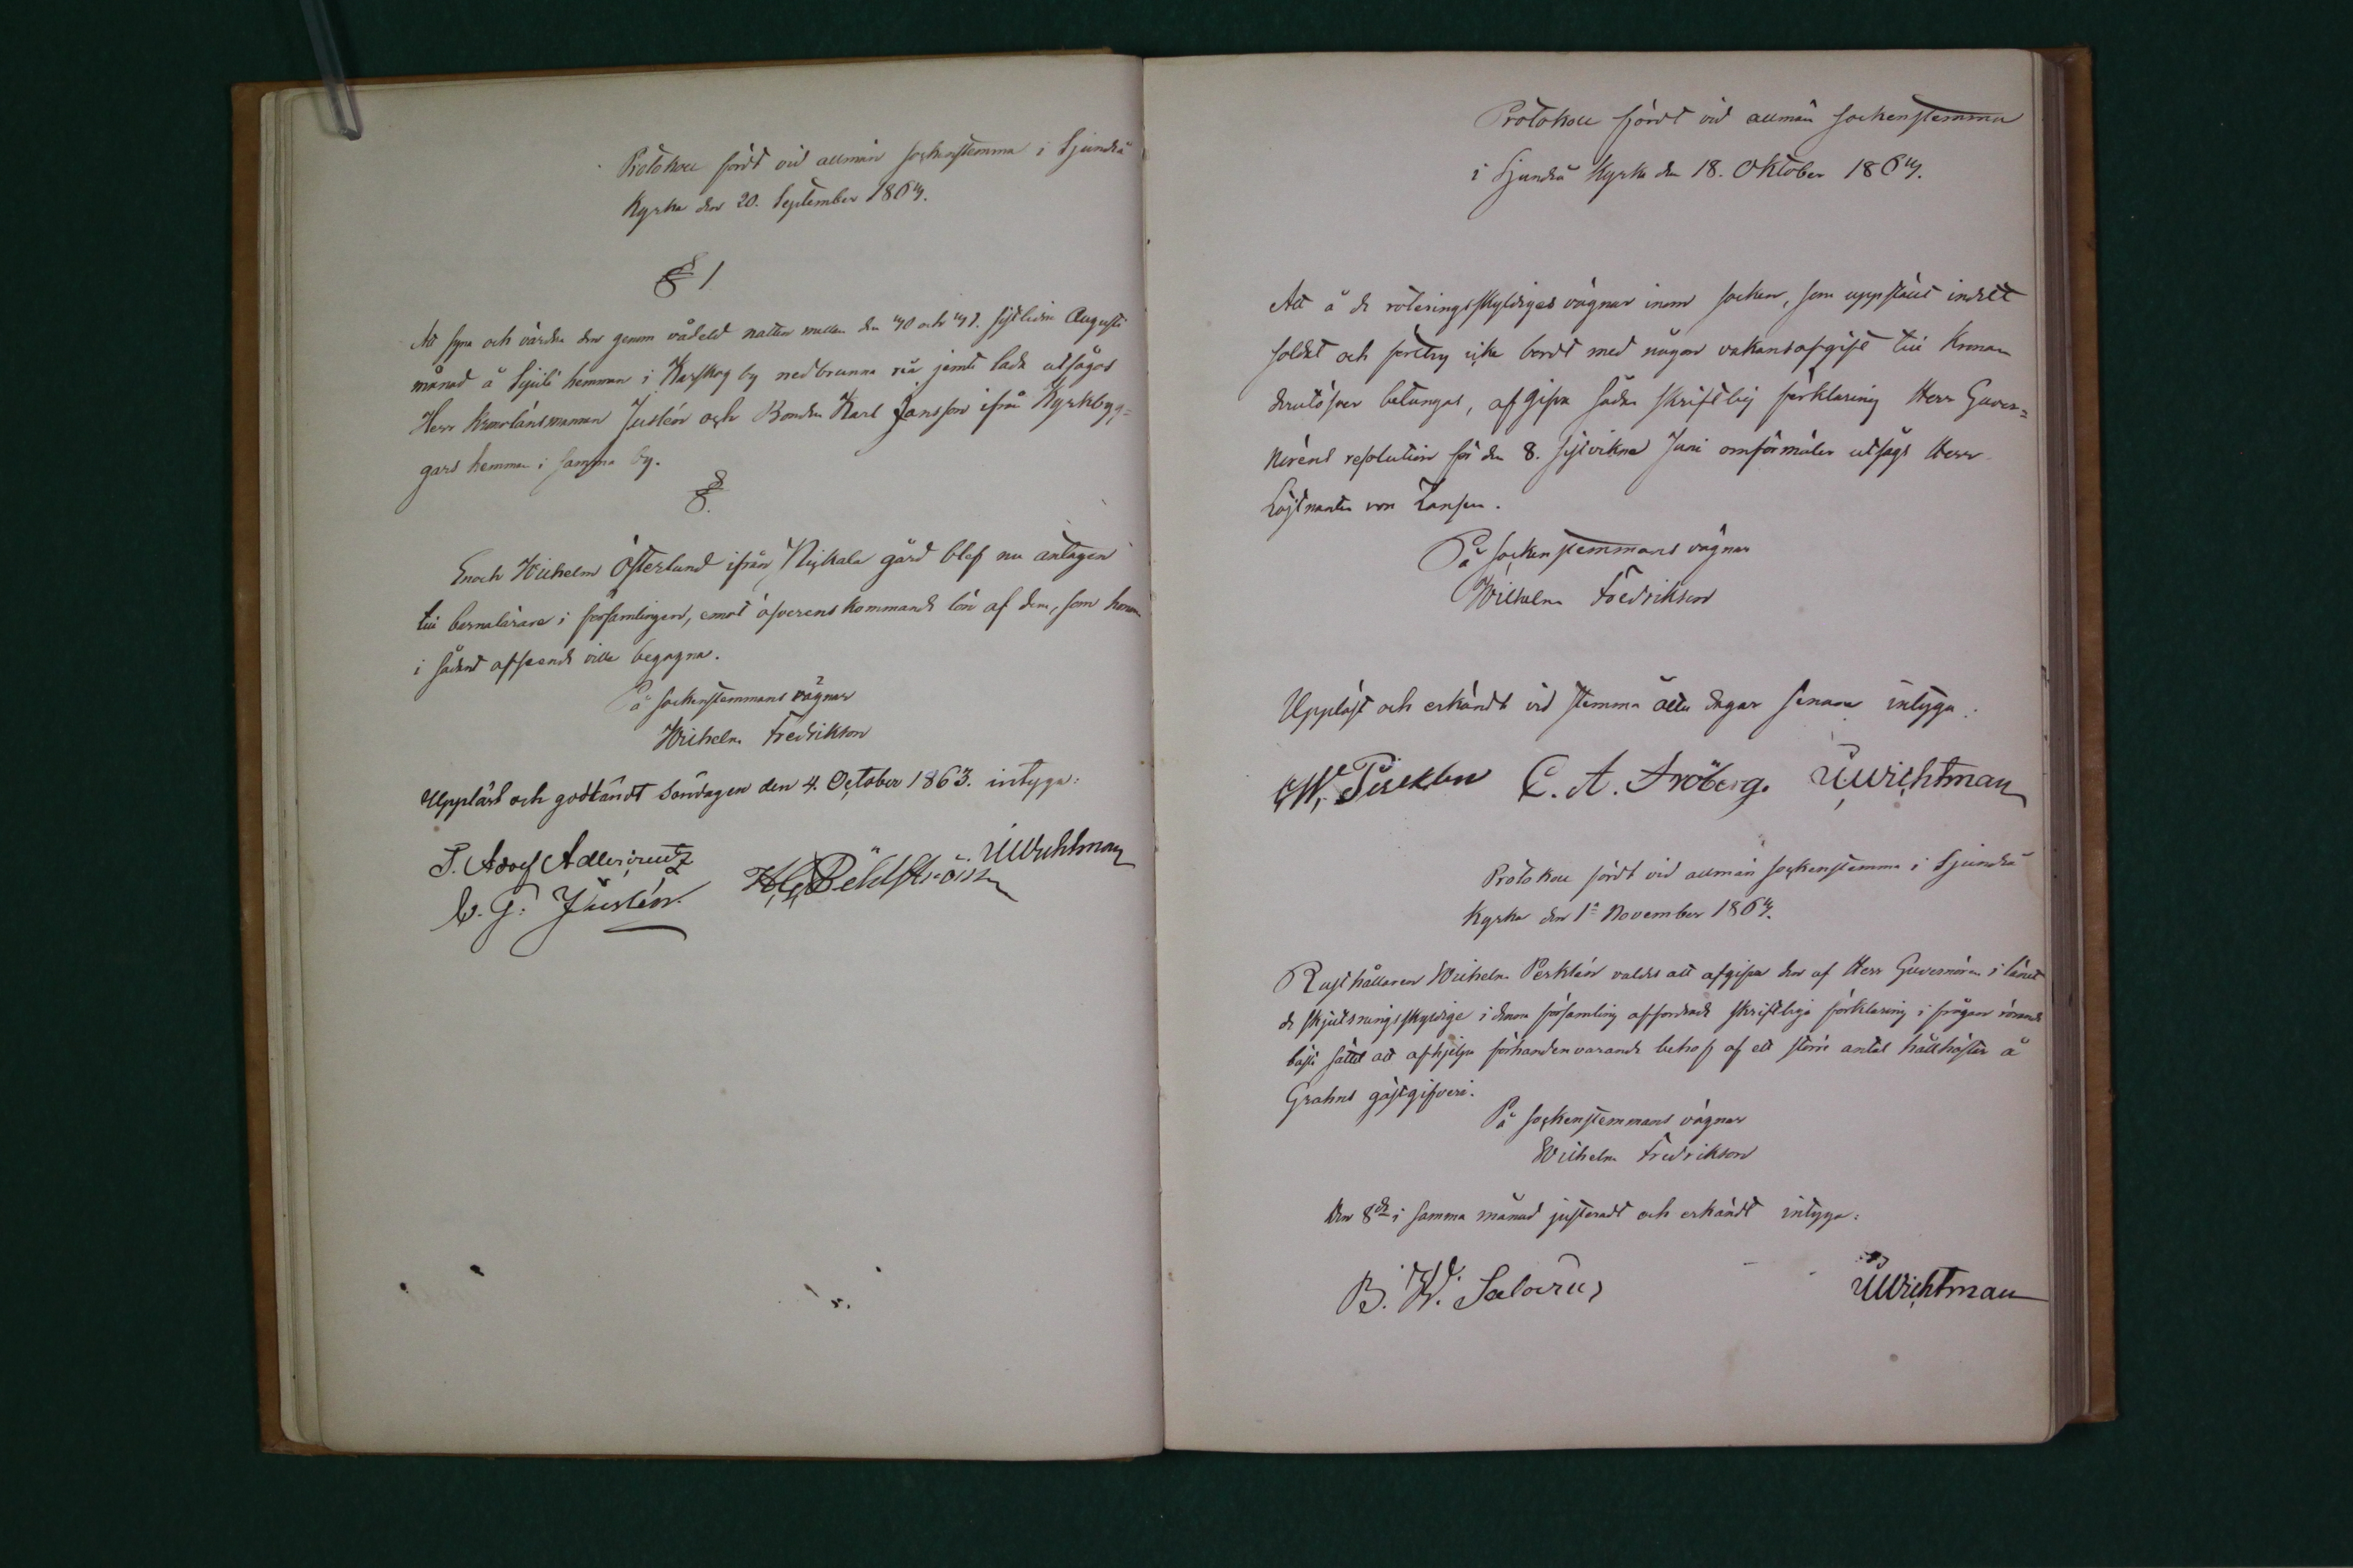 Protokoll fördt vid allmän sockenstemma i Sjundeå
Kyrka den 20. September 1863.
§ 1
Att syna och värdera den genom vådeld natten mellan den 30 och 31. sistlidne Augusti
månad å Sjuli hemman i Karskog by nedbrunna ria jemte lada utsågos
Herr Kronolänsmannen Juslén och Bonden Karl Jansson ifrån Kyrkbyg=
gars hemman i samma by.
§.
Enoch Wilhelm Österlund ifrån Nickala gård blef nu antagen
till barnalärare i församlingen, emot öfverenskommande lön af dem, som honom
i sådant afseende ville begagna.
På sockenstemmans vägnar
Wilhelm Fredrikson
Uppläst och godkändt söndagen den 4. October 1863. intyga:
Wichtman
Adolf Adlercreutz
G. Juslén.
Protokoll fördt vid allmän sockenstemma
i Sjundeå Kyrka den 18. Oktober 1863.
Att å de roteringsskyldiges vägnar inom socken, som uppställt indelt
soldat och icke bordt med någon vakansafgift till Kronan
derutöfver betungas, afgifva sådan skriftlig förklaring Herr Guver=
nörens resolution för den 8. sistvikne Juni omförmäler utsågs Herr
Löjtnanten von Zansen.
På sockenstemmans vägnar
Wilhelm Fredrikson
Uppläst och erkändt vid stemma åtta dagar senare intyga:
C. A. Fröberg. Wichtman
Protokoll fördt vid allmän sockenstemma i Sjundeå
Kyrka den 1a November 1863.
Rusthållaren Wilhelm Perklén valdes att afgifva den af Herr Guvernören i länet
de skjutsningsskyldige i denna församling affordrade skriftliga förklaring i frågan rörande
bästa sättet att afhjelpa förhandenvarande behof af ett större antal hållhästar å
Grahns gästgifveri.
På sockenstemmans vägnar
Wilhelm Fredrikson
Den 8de i samma månad justeradt och erkändt intyga:
B. W. Salovius Wichtman